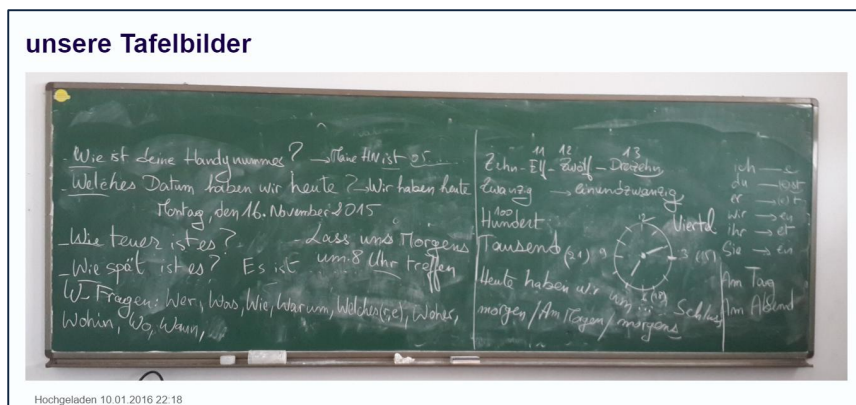 unsere Tafelbilder
- Wie ist deine Handynummer? → Meine HN ist 05
- Welches Datum haben wir heute? → Wir haben heute
Montag, den 16. November 2015
- Wie teuer ist es? - Lass uns Morgens
- Wie spät ist es? Es ist um 8 Uhr treffen
W-Fragen: Wer, Was, Wie, Warum, Welches(r,e), Woher,
Wohin, Wo, Wann,
11 12 13
Zehn - Elf - Zwölf - Dreizehn
Zwanzig → einundzwanzig
100
Hundert
Tausend
12 Viertel
(21) 9 3 (15)
6
Heute haben wir Schluss
morgen / Am Morgen / morgens
ich e
du → (e)st
er → (e)t
wir → en
ihr → et
Sie → en
Am Tag
Am Abend
Hochgeladen 10.01.2016 22:18